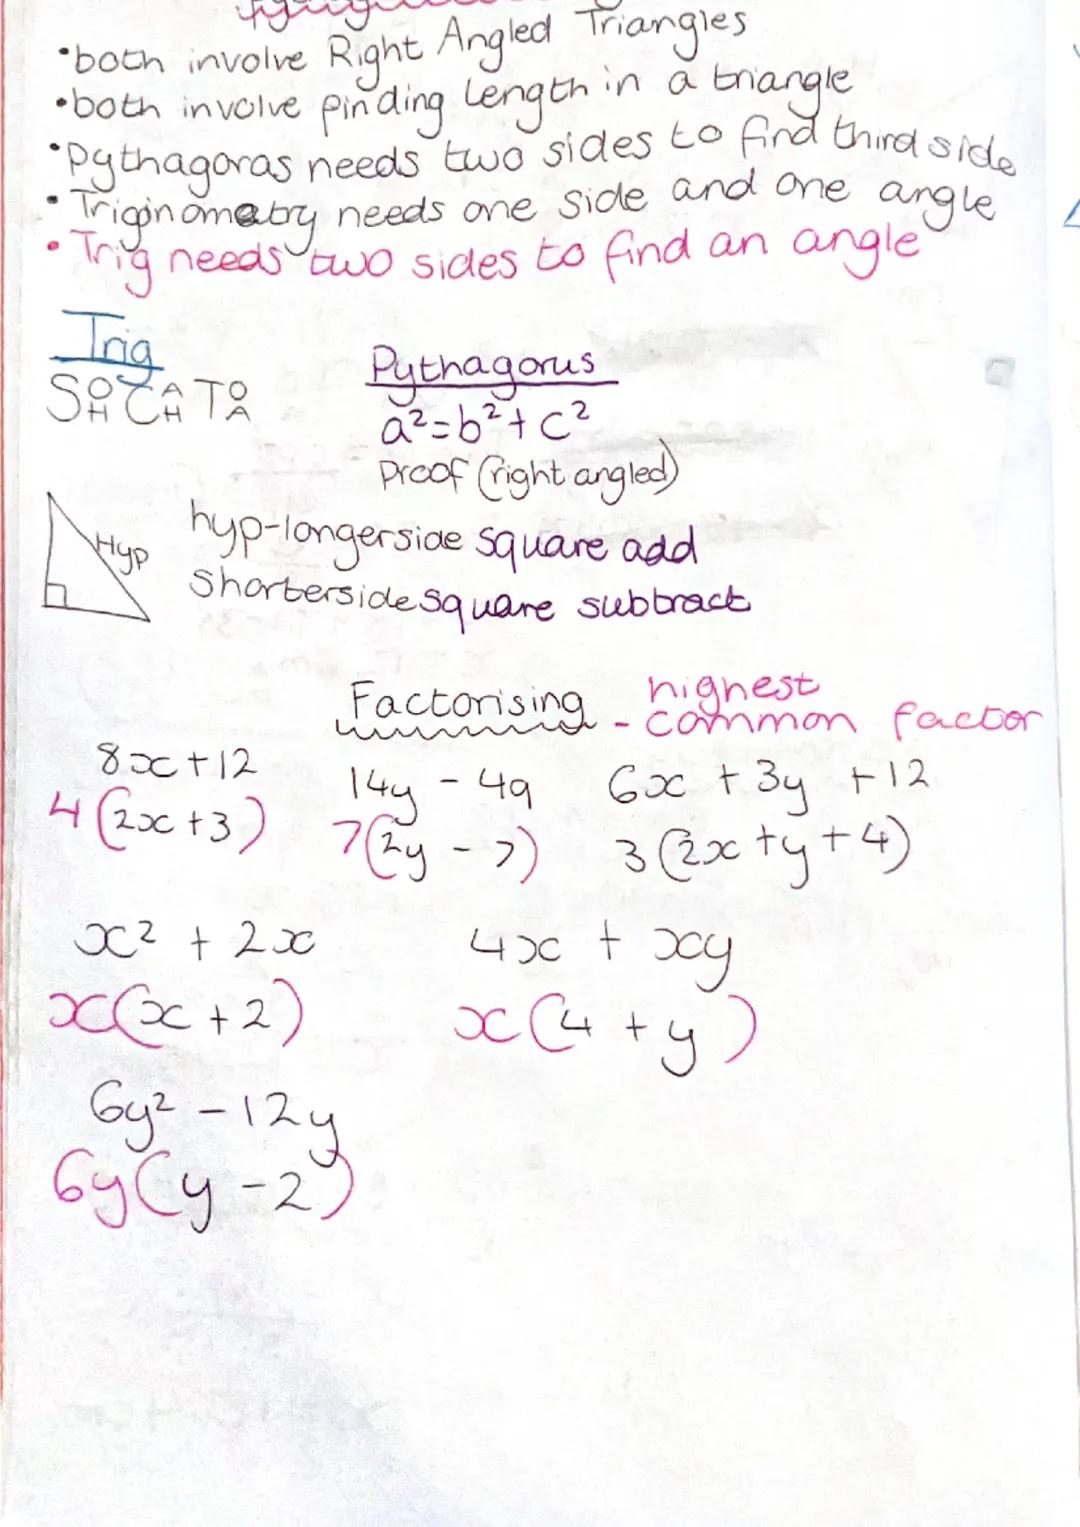 •both involve Right Angled Triangles
•both involve pinding Length in a triangle
•Pythagoras needs two sides to find third side
•Triginometry needs one side and one angle
•Trig needs two sides to find an angle
Trig
SOH CAH TOA
Pythagorus
a²=b²+c²
Proof (right angled)
Hyp
hyp-longerside square add
Shorterside square subtract
Factorising - highest common factor
8x+12
4(2x+3)
14y - 49
7(2y - 7)
6x + 3y + 12
3(2x+y+4)
x² + 2x
x(x+2)
4x + xy
x(4 + y)
6y² - 12y
6y(y - 2)